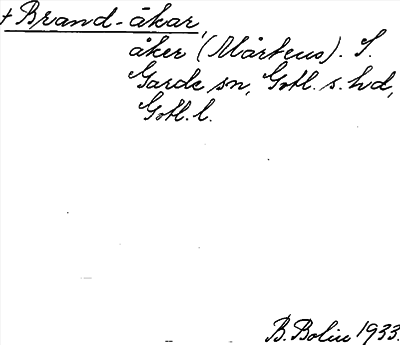 + Brand-åkar,
åker (Mårtens). I.
Garde sn, Gotl. s. hd,
Gotl. l.
B. Bolin 1933.